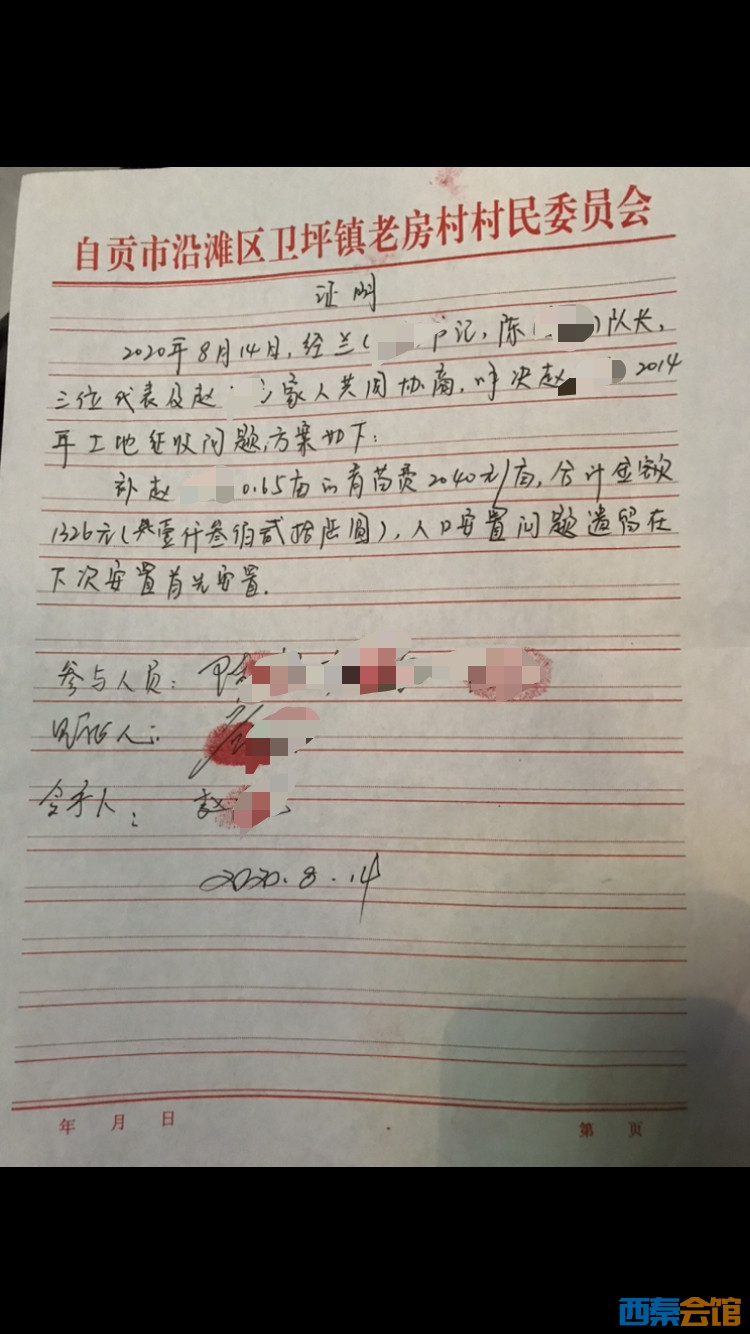 自贡市沿滩区卫坪镇老房村村民委员会
证明
2020年8月14日,经兰( 书记,陈( )队长,
三位代表及赵 家人共同协商,解决赵 2014
年土地征收问题,方案如下:
补赵 0.65亩的青苗费2040元/亩,合计金额
1326元(壹仟叁佰贰拾陆圆),人口安置问题遗留在
下次安置首先安置.
参与人员:
见证人:
会手人: 赵
2020.8.14
年 月 日
第 页
西秦会馆